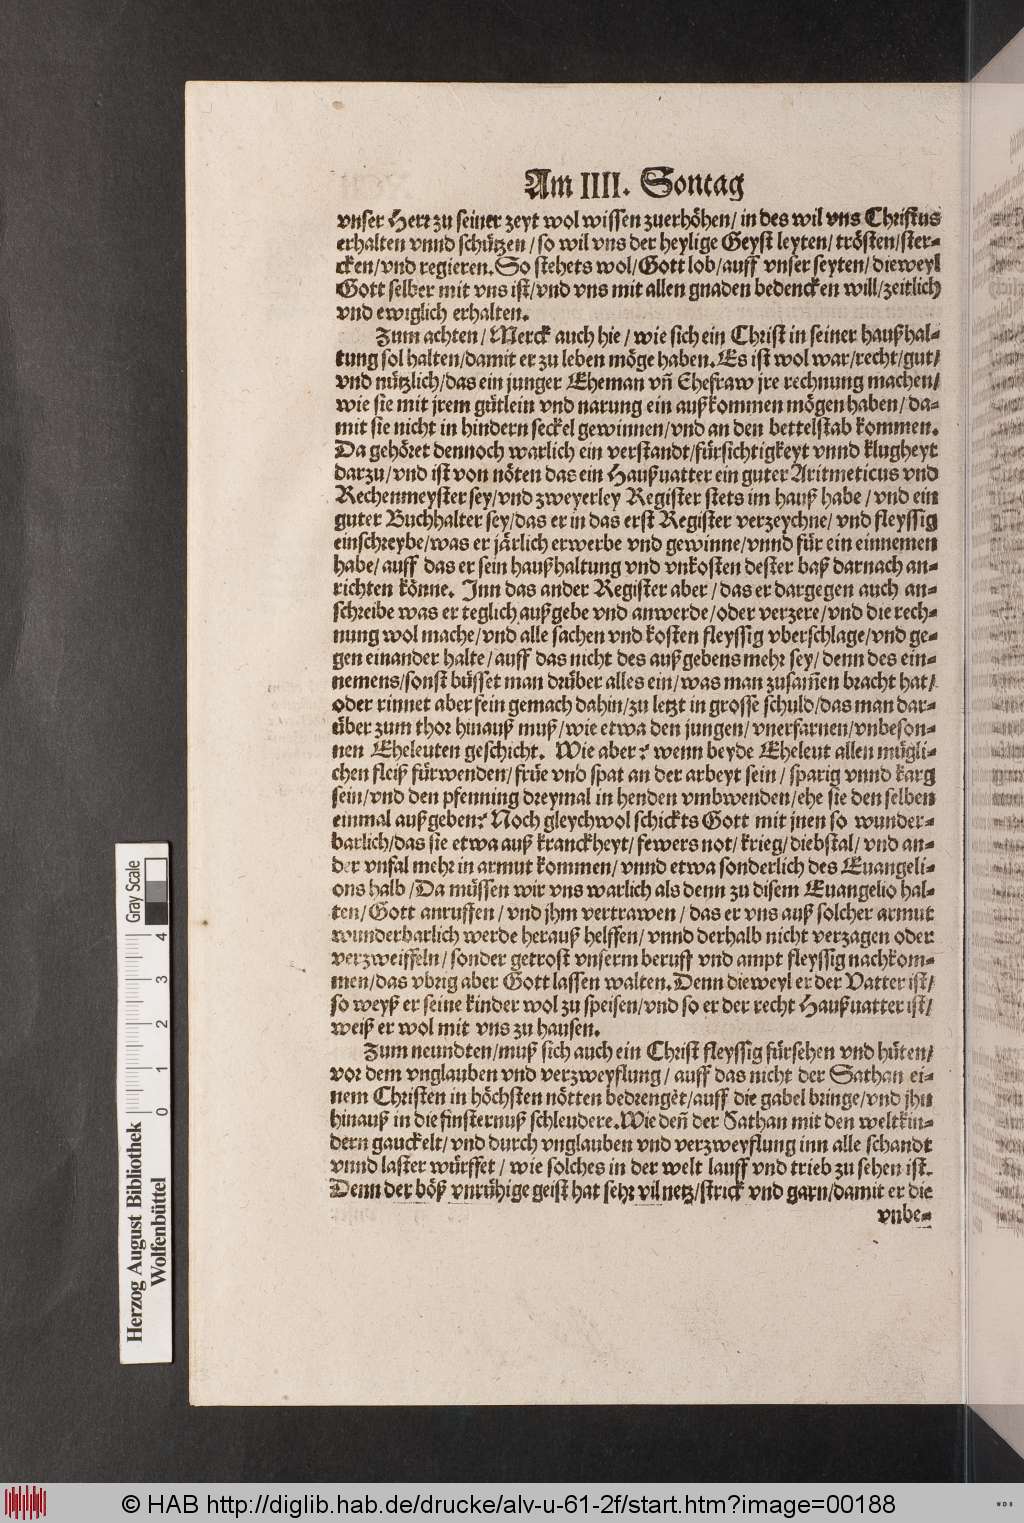 Am IIII. Sontag
vnser Herr zu seiner zeyt wol wissen zuerhöhen/ in des wil vns Christus
erhalten vnnd schützen/ so wil vns der heylige Geyst leyten/ trösten/ ster-
cken/ vnd regieren. So stehets wol/ Gott lob/ auff vnser seyten/ dieweyl
Gott selber mit vns ist/ vnd vns mit allen gnaden bedencken will/ zeitlich
vnd ewiglich erhalten.
Zum achten/ Merck auch hie/ wie sich ein Christ in seiner haußhal-
tung sol halten/ damit er zu leben möge haben. Es ist wol war/ recht/ gut/
vnd nützlich/ das ein junger Eheman vñ Ehefraw jre rechnung machen/
wie sie mit jrem gütlein vnd narung ein außkommen mögen haben/ da-
mit sie nicht in hindern seckel gewinnen/ vnd an den bettelstab kommen.
Da gehöret dennoch warlich ein verstandt/ fürsichtigkeyt vnnd klugheyt
darzu/ vnd ist von nöten das ein Haußuatter ein guter Aritmeticus vnd
Rechenmeyster sey/ vnd zweyerley Register stets im hauß habe/ vnd ein
guter Buchhalter sey/ das er in das erst Register verzeychne/ vnd fleyssig
einschreybe/ was er järlich erwerbe vnd gewinne/ vnnd für ein einnemen
habe/ auff das er sein haußhaltung vnd vnkosten dester baß darnach an-
richten könne. Inn das ander Register aber/ das er dargegen auch an-
schreibe was er teglich außgebe vnd anwerde/ oder verzere/ vnd die rech-
nung wol mache/ vnd alle sachen vnd kosten fleyssig vberschlage/ vnd ge-
gen einander halte/ auff das nicht des außgebens mehr sey/ denn des ein-
nemens/ sonst büsset man drüber alles ein/ was man zusam̃en bracht hat/
oder rinnet aber fein gemach dahin/ zu letzt in grosse schuld/ das man dar-
über zum thor hinauß muß/ wie etwa den jungen/ vnerfarnen/ vnbeson-
nen Eheleuten geschicht. Wie aber? wenn beyde Eheleut allen mügli-
chen fleiß fürwenden/ früe vnd spat an der arbeyt sein/ sparig vnnd karg
sein/ vnd den pfenning dreymal in henden vmbwenden/ ehe sie den selben
einmal außgeben? Noch gleychwol schickts Gott mit jnen so wunder-
barlich/ das sie etwa auß kranckheyt/ fewers not/ krieg/ diebstal/ vnd an-
der vnfal mehr in armut kommen/ vnnd etwa sonderlich des Euangeli-
ons halb/ Da müssen wir vns warlich als denn zu disem Euangelio hal-
ten/ Gott anruffen/ vnd jhm vertrawen/ das er vns auß solcher armut
wunderbarlich werde herauß helffen/ vnnd derhalb nicht verzagen oder
verzweiffeln/ sonder getrost vnserm beruff vnd ampt fleyssig nachkom-
men/ das vbrig aber Gott lassen walten. Denn dieweyl er der Vatter ist/
so weyß er seine kinder wol zu speisen/ vnd so er der recht Haußuatter ist/
weiß er wol mit vns zu hausen.
Zum neundten/ muß sich auch ein Christ fleyssig fürsehen vnd hüten/
vor dem vnglauben vnd verzweyflung/ auff das nicht der Sathan ei-
nem Christen in höchsten nötten bedrenget/ auff die gabel bringe/ vnd jhn
hinauß in die finsternuß schleudere. Wie deñ der Sathan mit den weltkin-
dern gauckelt/ vnd durch vnglauben vnd verzweyflung inn alle schandt
vnnd laster würffet/ wie solches in der welt lauff vnd trieb zu sehen ist.
Denn der böß vnrühige geist hat sehr vil netz/ strick vnd garn/ damit er die
vnbe-
Gray Scale
4
3
2
1
0
Herzog August Bibliothek
Wolfenbüttel
© HAB http://diglib.hab.de/drucke/alv-u-61-2f/start.htm?image=00188